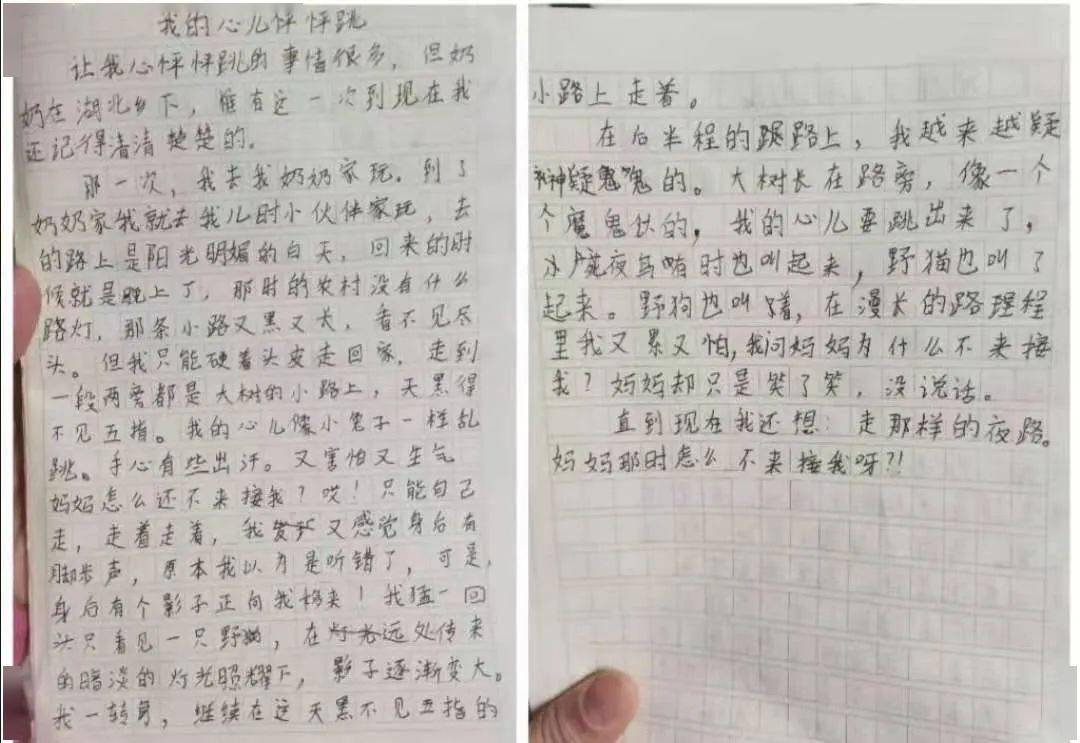 我的心儿怦怦跳
让我心怦怦跳的事情很多，但奶
奶在湖北乡下，惟有这一次到现在我
还记得清清楚楚的。
那一次，我去我奶奶家玩。到了
奶奶家我就去我儿时小伙伴家玩，去
的路上是阳光明媚的白天，回来的时
候就是晚上了，那时的农村没有什么
路灯，那条小路又黑又长，看不见尽
头。但我只能硬着头皮走回家，走到
一段两旁都是大树的小路上，天黑得
不见五指。我的心儿像小兔子一样乱
跳。手心有些出汗。又害怕又生气
妈妈怎么还不来接我？哎！只能自己
走，走着走着，我又感觉身后有
脚步声，原本我以为是听错了，可是，
身后有个影子正向我移来！我猛一回
头只看见一只野猫，在远处传来
的暗淡的灯光照耀下，影子逐渐变大。
我一转身，继续在这天黑不见五指的
小路上走着。
在后半程的路上，我越来越疑
神疑鬼的。大树长在路旁，像一个
个魔鬼似的，我的心儿要跳出来了，
夜鸟啃时也叫起来，野猫也叫了
起来。野狗也叫着，在漫长的路程
里我又累又怕，我问妈妈为什么不来接
我？妈妈却只是笑了笑，没说话。
直到现在我还想：走那样的夜路。
妈妈那时怎么不来接我呀？！